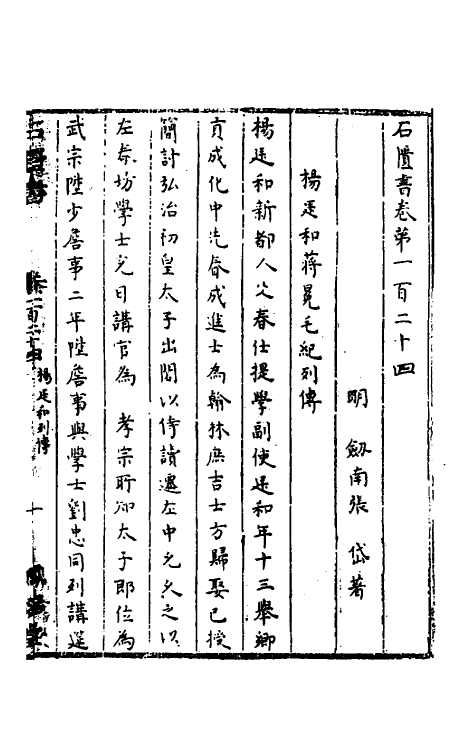 石匱書卷第一百二十四
明 劔南張 岱著
楊廷和蔣冕毛紀列傳
楊廷和新都人父春仕提學副使廷和年十三舉鄉
貢成化中先春成進士為翰林庶吉士方歸娶已授
簡討弘治初皇太子出閣以侍讀遷左中允久之以
左春坊學士充日講官為 孝宗所知太子即位為
武宗陞少詹事二年陞詹事與學士劉忠同列講筵
石匱書 卷一百二十四 楊廷和列傳 十